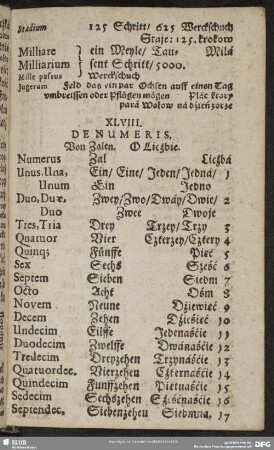 Stadium 125 Schritt/ 625 Werckschuch
Staje: 125. krokow
Milliare ein Meyle/ Tau- Milá
Milliarium sent Schritt/ 5000.
Mille passus Werckschuch
Jugerum Feld das ein par Ochsen auff einen Tag
vmbreissen oder Pflügen mögen Plác ktory
pará Wołow ná dźień zorze
XLVIII.
DE NUMERIS.
Von Zalen. O Liczbie.
Numerus Zal Liczbá
Unus. Una, Ein/ Eine/ Jeden/ Jedná/ 1
Unum Ein Jedno
Duo, Duæ, Zwey/ Zwo/ Dwáy/ Dwie/ 2
Duo Zwee Dwoje
Tres, Tria Drey Trzey/ Trzy 3
Quatuor Vier Czterzey/ Cztery 4
Quinq; Fünffe Pięć 5
Sex Sechs Sześć 6
Septem Sieben Siedm 7
Octo Acht Ośm 8
Novem Neune Dźiewięć 9
Decem Zehen Dźieśięć 10
Undecim Eilffe Jedenaśćie 11
Duodecim Zwelffe Dwánaśćie 12
Tredecim Dreyzehen Trzynaśćie 13
Quatuordec. Vierzehen Czternaśćie 14
Quindecim Funffzehen Pietnaśćie 15
Sedecim Sechszehen Szesnaśćie 16
Septendec. Siebenzeheu Siedmna. 17
SLUB
DFG